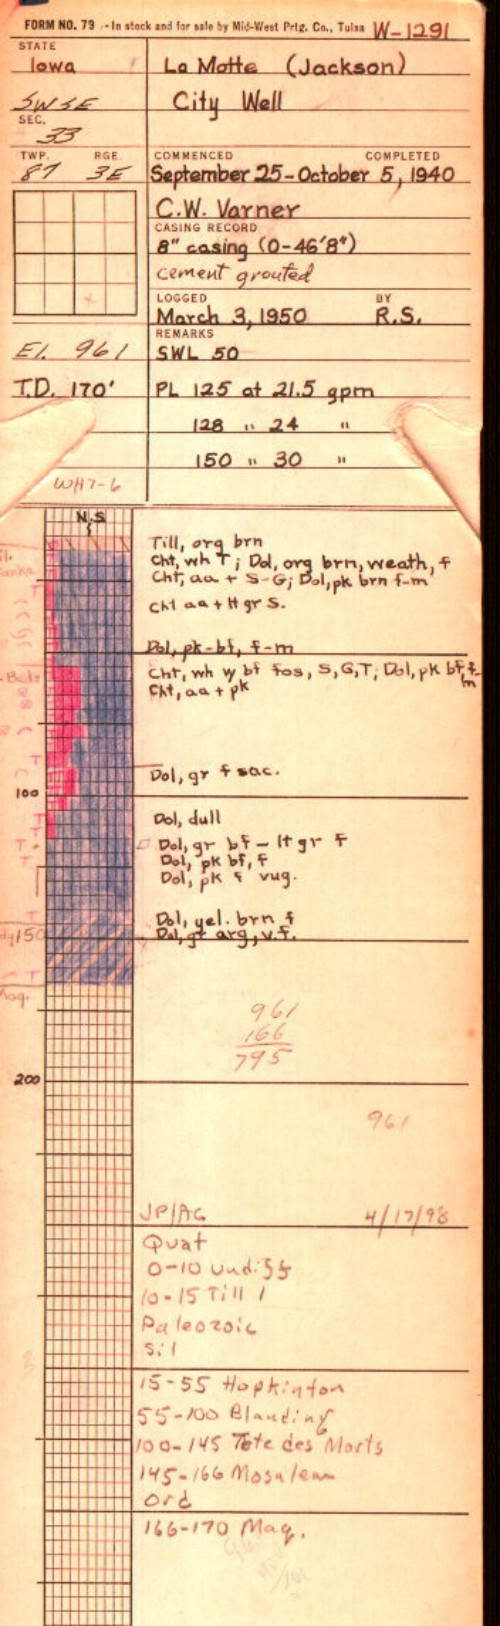 FORM NO. 79 - In stock and for sale by Mid-West Prtg. Co., Tulsa W-1291
STATE
Iowa La Motte (Jackson)
SWSE City Well
SEC.
33
TWP. RGE. COMMENCED COMPLETED
87 3E September 25-October 5, 1940
C.W. Varner
CASING RECORD
8" casing (0-46'8")
cement grouted
LOGGED BY
March 3, 1950 R.S.
REMARKS
El. 961 SWL 50
T.D. 170' PL 125 at 21.5 gpm
128 " 24 "
150 " 30 "
WH7-6
N.S.
Till, org brn
Cht, wh T; Dol, org brn, weath, f
Cht, aa + S-G; Dol, pk brn f-m
Cht aa + lt gr S.
Dol, pk-bf, f-m
Cht, wh w bf fos, S, G, T; Dol, pk bf, f-m
Cht, aa + pk
Dol, gr f sac.
100
Dol, dull
Dol, gr bf - lt gr f
Dol, pk bf, f
Dol, pk f vug.
Dol, yel. brn f
150 Dol, gr arg, v.f.
Maq.
961
166
795
200
961
JP/AG 4/17/98
Quat
0-10 undiff
10-15 Till
Paleozoic
Sil
15-55 Hopkinton
55-100 Blanding
100-145 Tete des Morts
145-166 Mosalem
Ord
166-170 Maq.